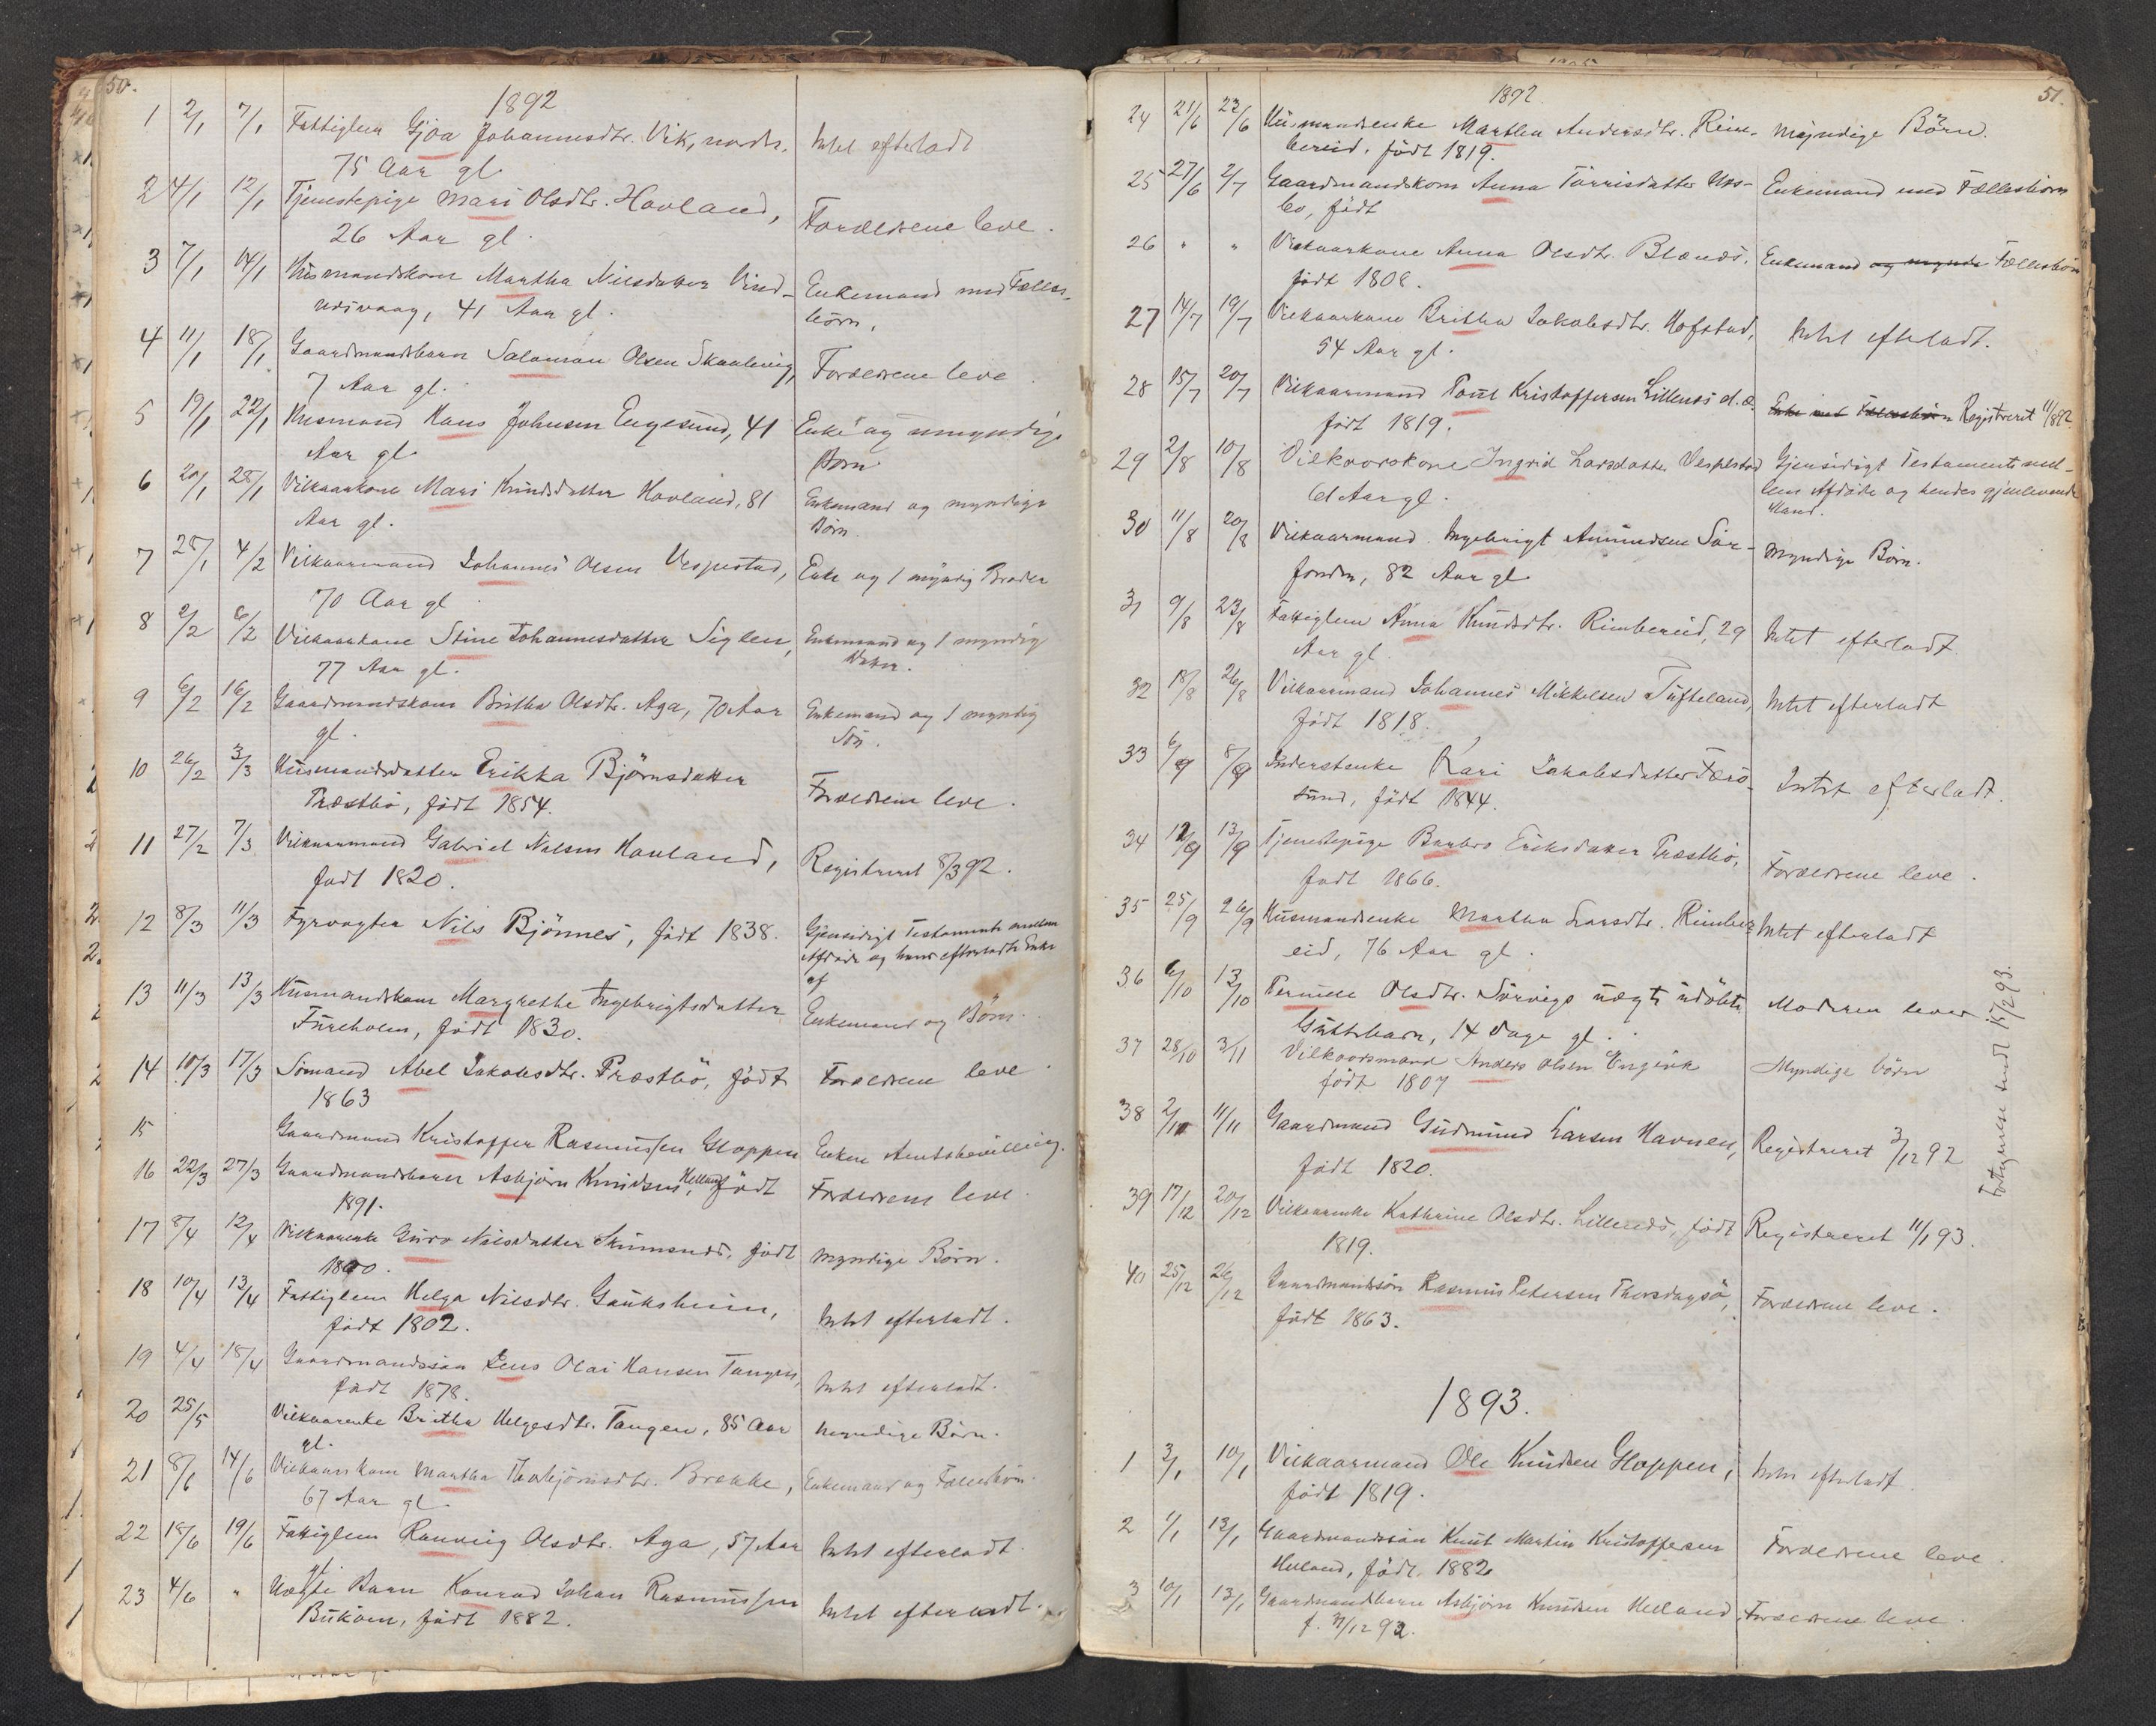 50.
1892
1 2/1 7/1 Fattiglem Gjøa Johannesdtr. Vik, nordr. Intet efterladt
75 Aar gl.
2 4/1 12/1 Tjenestepige Mari Olsdtr. Hovland, Forældrene leve.
26 Aar gl.
3 7/1 14/1 Husmandskone Martha Nilsdatter Vind- Enkemand med Fælles-
næsvaag, 41 Aar gl. børn.
4 11/1 18/1 Gaardmandsbarn Salamon Olsen Skaalevig, Forældrene leve
7 Aar gl.
5 19/1 22/1 Husmand Hans Johnsen Engesund, 41 Enke og umyndige
Aar gl. Børn
6 20/1 28/1 Vilkaarkone Mari Knudsdatter Hovland, 81 Enkemand og myndige
Aar gl. Børn.
7 28/1 4/2 Vilkaarmand Johannes Olsen Vespestad, Enke og 1 myndig Broder
70 Aar gl.
8 2/2 6/2 Vilkaarkone Stine Johannesdatter Siglen, Enkemand og 1 myndig
77 Aar gl. Datter.
9 6/2 16/2 Gaardmandskone Britha Olsdtr. Aga, 70 Aar Enkemand og 1 myndig
gl. Søn.
10 26/2 3/3 Husmandsdatter Erikka Bjørnsdatter Forældrene leve.
Præstbø, født 1854.
11 27/2 7/3 Vilkaarmand Gabriel Nilsen Hovland, Registreret 8/3 92.
født 1820.
12 8/3 11/3 Fyrvogter Nils Bjønnes, født 1838. Gjensidigt Testamente mellem
Afdøde og hans efterladte Enke
af
13 11/3 13/3 Husmandskone Margrethe Ingebrigtsdatter Enkemand og Børn.
Fureholm, født 1830.
14 10/3 17/3 Sømand Abel Jakobsdtr. Præstbø, født Forældrene leve.
1863
15 Gaardmand Kristoffer Rasmussen Gloppen Enken Amtsbevilling.
16 22/3 27/3 Gaardmandsbarn Asbjørn Knudsen Helland, født Forældrene leve.
1891.
17 8/4 12/4 Vilkaarenke Guro Nilsdatter Skumsnæs, født Myndige Børn.
1800.
18 10/4 13/4 Fattiglem Helga Nilsdtr. Gauksheim, Intet efterladt.
født 1802.
19 4/4 18/4 Gaardmandssøn Jens Olai Hansen Tangen, Intet efterladt.
født 1878.
20 25/5 Vilkaarenke Britha Helgesdtr. Tangen, 85 Aar Myndige Børn.
gl.
21 8/6 14/6 Vilkaarskone Martha Thorbjørnsdtr. Brekke, Enkemand og Fællesbørn.
67 Aar gl.
22 18/6 19/6 Fattiglem Rannveig Olsdtr. Aga, 57 Aar Intet efterladt.
gl.
23 4/6 " Uægte Barn Konrad Johan Rasmussen Intet efterladt.
Bukøen, født 1882.
51.
1892.
24 21/6 23/6 Husmandsenke Martha Andersdtr. Rim- Myndige Børn.
bereid, født 1819.
25 27/6 2/7 Gaardmandskone Anna Tørrisdatter Urs- Enkemand med Fællesbørn
bø, født
26 " " Vilkaarkone Anna Olsdtr. Blænæs. Enkemand og mynde Fællesbørn
født 1808.
27 14/7 19/7 Vilkaarkone Britha Jakobsdtr. Hofstad, Intet efterladt.
54 Aar gl.
28 15/7 20/7 Vilkaarmand Poul Kristoffersen Lillenæs d. æ. Enke med Fællesbørn Registreret 11/8 92.
født 1819.
29 2/8 10/8 Vilkaarskone Ingrid Larsdatter Vespestad Gjensidigt Testamente mel-
61 Aar gl. lem Afdøde og hendes gjenlevende
Mand.
30 11/8 20/8 Vilkaarmand Ingebrigt Amundsen Sør- Myndige Børn.
fonden, 82 Aar gl.
31 9/8 23/8 Fattiglem Anna Knudsdtr. Rimbereid, 29 Intet efterladt
Aar gl.
32 18/8 26/8 Vilkaarmand Johannes Mikkelsen Tufteland, Intet efterladt
født 1818.
33 6/9 8/9 Inderstenke Kari Jakobsdatter Færø- Intet efterladt.
sund, født 1844.
34 12/9 13/9 Tjenestepige Barbro Eriksdatter Præstbø, Forældrene leve.
født 1866.
35 25/9 26/9 Husmandsenke Martha Larsdtr. Rimber Intet efterladt
eid, 76 Aar gl.
36 6/10 13/10 Pernille Olsdtr. Sørvigs uægte udøbte Moderen lever
Guttebarn, 14 Dage gl.
37 28/10 3/11 Vilkaarsmand Anders Olsen Engevik Myndige børn
født 1807
38 2/11 11/11 Gaardmand Gudmund Larsen Havnen, Registreret 3/12 92
født 1820.
39 17/12 20/12 Vilkaarenke Kathrine Olsdtr. Lillenæs, født Registreret 11/1 93.
1819.
40 25/12 26/12 Gaardmandssøn Rasmus Petersen Thorsdagsø, Forældrene leve.
født 1863.
1893.
1 3/1 10/1 Vilkaarmand Ole Knudsen Gloppen, Intet efterladt.
født 1819.
2 1/1 13/1 Gaardmandssøn Knut Martin Kristoffersen Forældrene leve.
Helland, født 1882
3 10/1 13/1 Gaardmandsbarn Asbjørn Knudsen Helland, Forældrene leve.
f. 31/12 92.